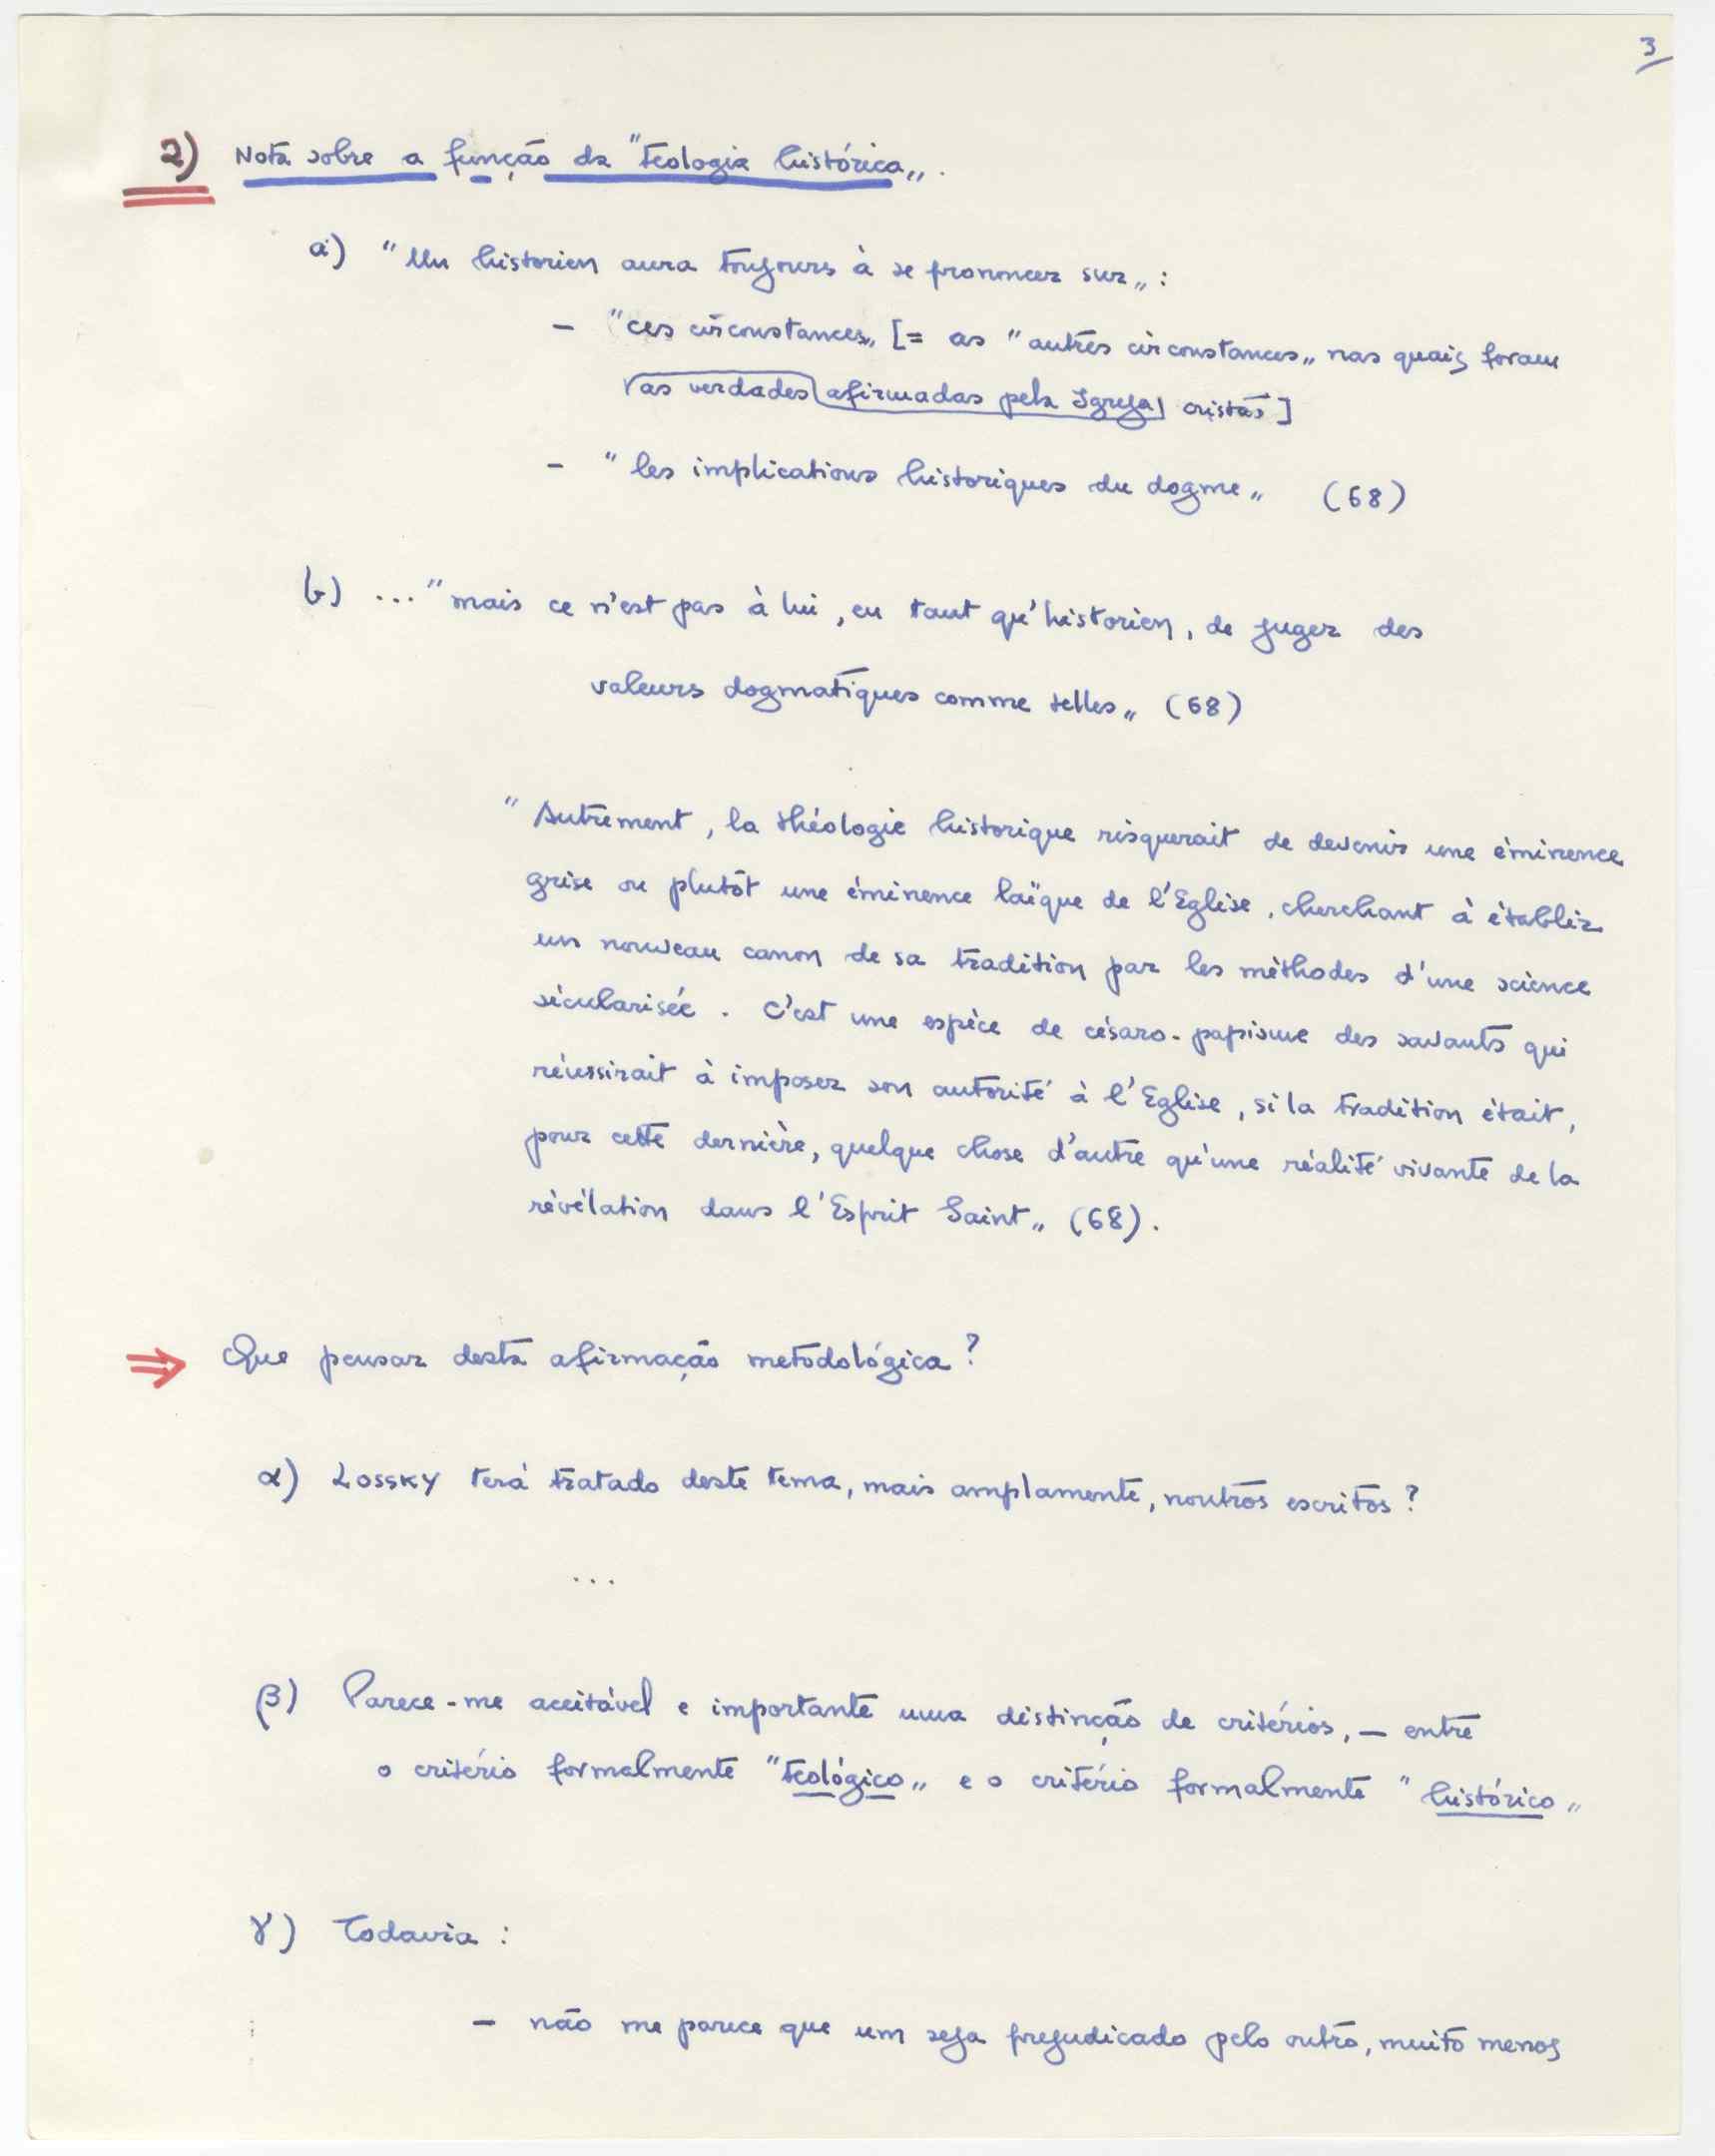 3
2) Nota sobre a função da "teologia histórica„.
a) "Un historien aura toujours à se prononcer sur„ :
- "ces circonstances„ [= as "autres circonstances„ nas quais foram
as verdades afirmadas pela Igreja cristãs]
- "les implications historiques du dogme„ (68)
b) ... "mais ce n'est pas à lui, en tant qu'historien, de juger des
valeurs dogmatiques comme telles„ (68)
"Autrement, la théologie historique risquerait de devenir une éminence
grise ou plutôt une éminence laïque de l'Eglise, cherchant à établir
un nouveau canon de sa tradition par les méthodes d'une science
sécularisée. C'est une espèce de césaro-papisme des savants qui
réussirait à imposer son autorité à l'Eglise, si la tradition était,
pour cette dernière, quelque chose d'autre qu'une réalité vivante de la
révélation dans l'Esprit Saint„ (68).
⇒ Que pensar desta afirmação metodológica?
α) LOSSKY terá tratado deste tema, mais amplamente, noutros escritos?
...
β) Parece-me aceitável e importante uma distinção de critérios, — entre
o critério formalmente "teológico„ e o critério formalmente "histórico„
γ) Todavia :
- não me parece que um seja prejudicado pelo outro, muito menos